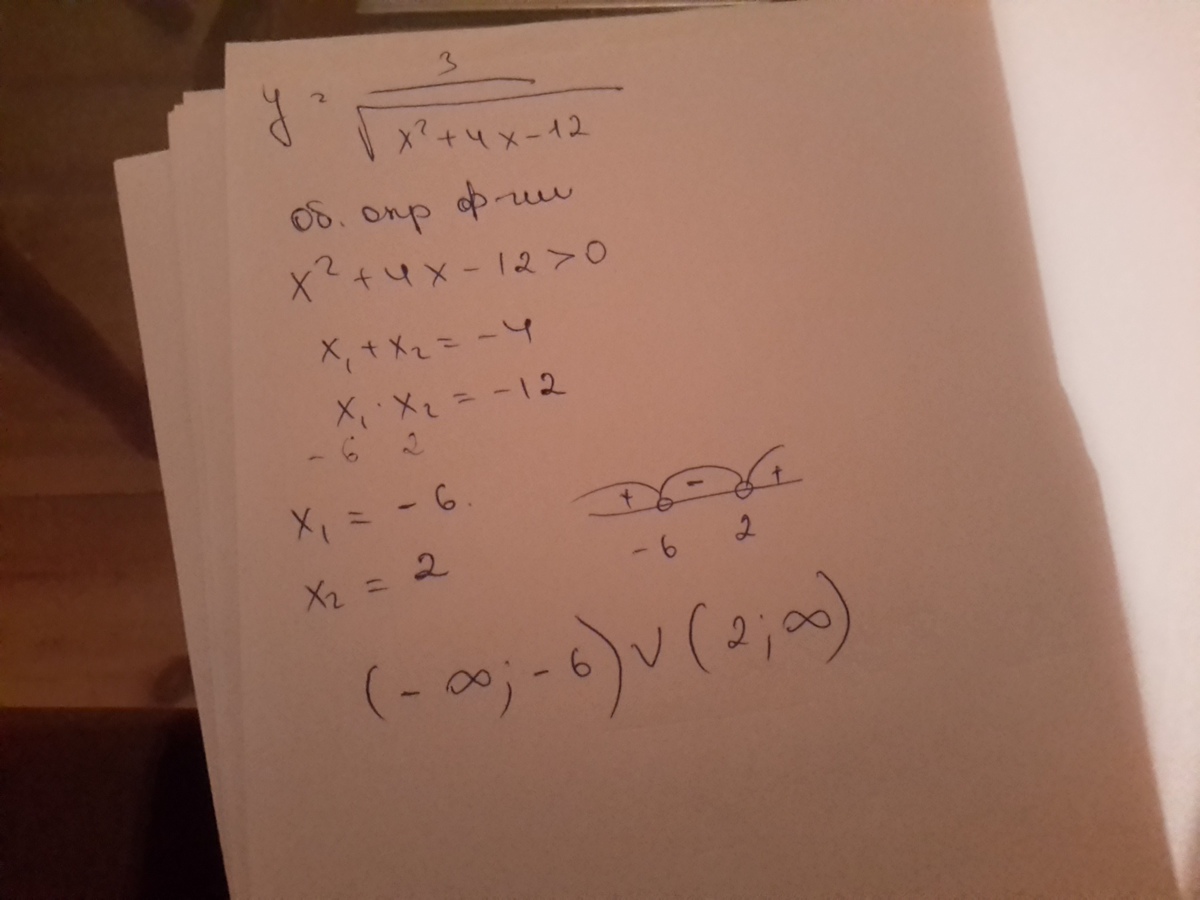 y = 3 / √(x² + 4x - 12)
об. опр ф-ции
x² + 4x - 12 > 0
x₁ + x₂ = -4
x₁ · x₂ = -12
-6 2
x₁ = -6.
x₂ = 2
+ - +
-6 2
(-∞; -6) ∨ (2; ∞)